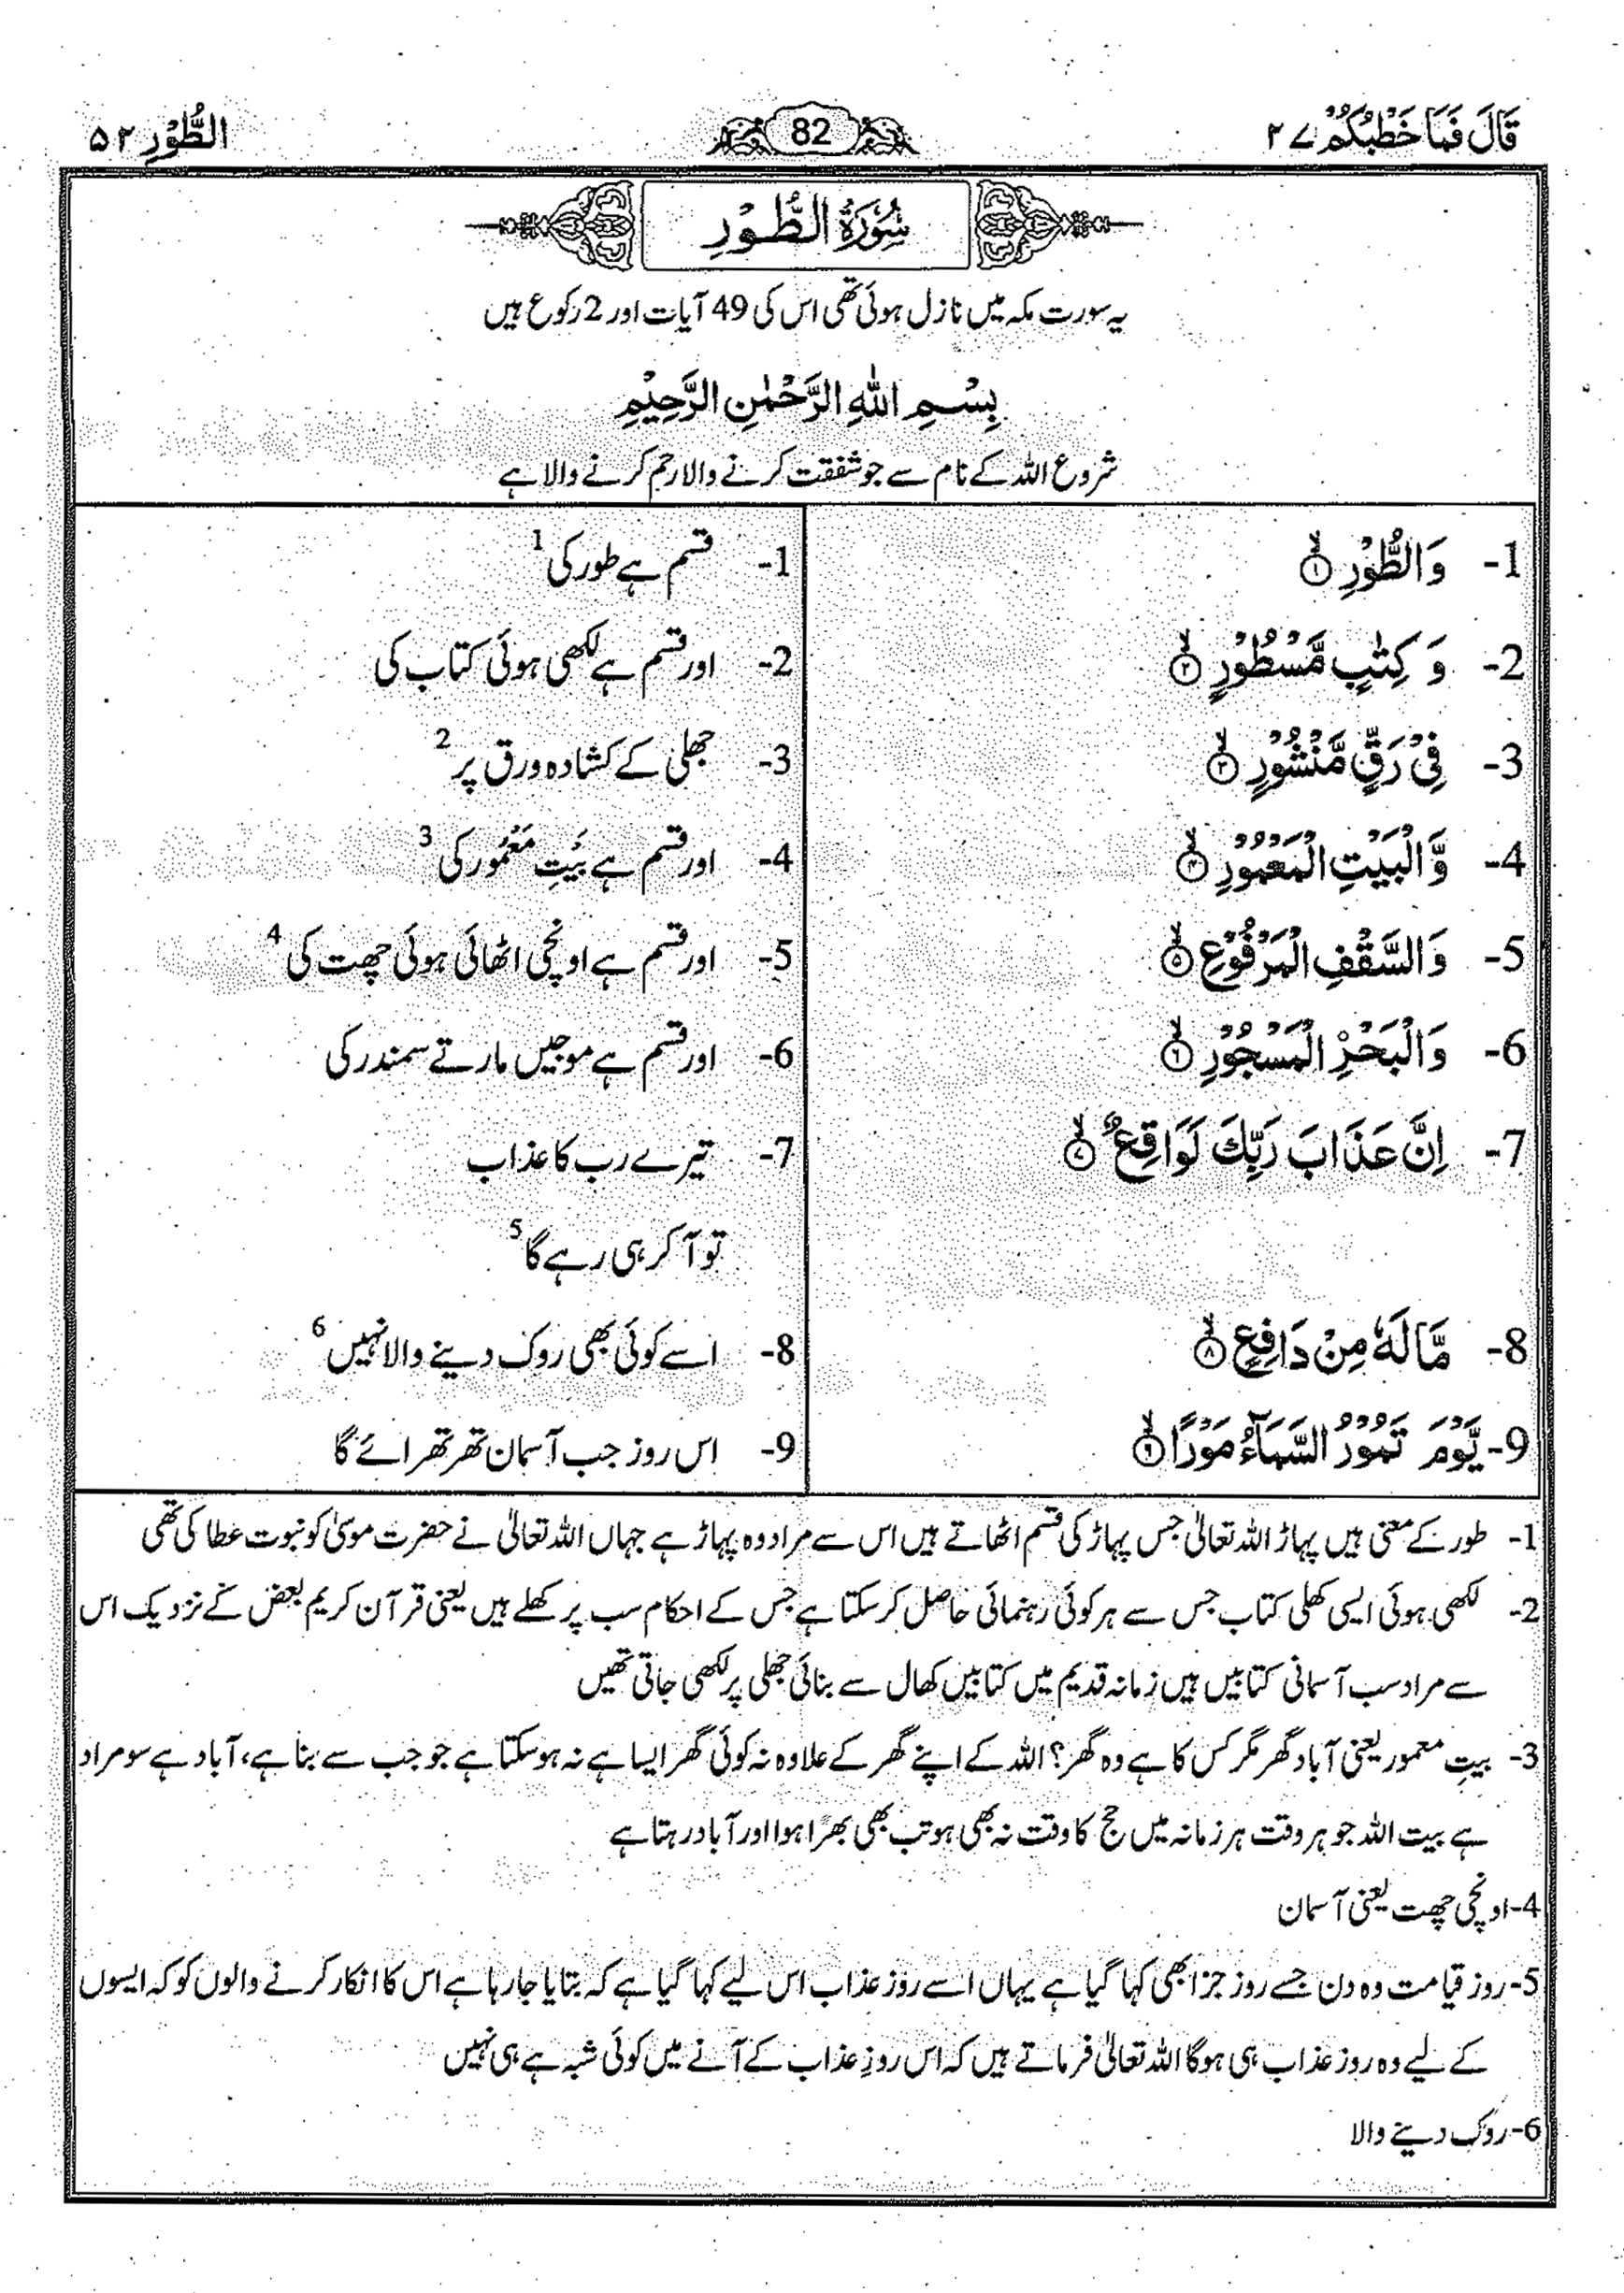 قَالَ فَمَا خَطْبُكُمْ ۲۷
82
الطُّوْرِ ۵۲
سُوْرَةُ الطُّوْرِ
یہ سورت مکہ میں نازل ہوئی تھی اس کی 49 آیات اور 2 رکوع ہیں
بِسْمِ اللّٰهِ الرَّحْمٰنِ الرَّحِيْمِ
شروع اللہ کے نام سے جو شفقت کرنے والا رحم کرنے والا ہے
1- وَالطُّوْرِ ۙ‏﴿۱﴾
2- وَ كِتٰبٍ مَّسْطُوْرٍ ۙ‏﴿۲﴾
3- فِىْ رَقٍّ مَّنْشُوْرٍ ۙ‏﴿۳﴾
4- وَّالْبَيْتِ الْمَعْمُوْرِ ۙ‏﴿۴﴾
5- وَالسَّقْفِ الْمَرْفُوْعِ ۙ‏﴿۵﴾
6- وَالْبَحْرِ الْمَسْجُوْرِ ۙ‏﴿۶﴾
7- اِنَّ عَذَابَ رَبِّكَ لَوَاقِعٌ ۙ‏﴿۷﴾
8- مَّا لَهٗ مِنْ دَافِعٍ ۙ‏﴿۸﴾
9- يَّوْمَ تَمُوْرُ السَّمَآءُ مَوْرًا ۙ‏﴿۹﴾
1- قسم ہے طور کی 1
2- اور قسم ہے لکھی ہوئی کتاب کی
3- جھلی کے کشادہ ورق پر 2
4- اور قسم ہے بَیتِ مَعْمُور کی 3
5- اور قسم ہے اونچی اٹھائی ہوئی چھت کی 4
6- اور قسم ہے موجیں مارتے سمندر کی
7- تیرے رب کا عذاب
تو آ کر ہی رہے گا 5
8- اسے کوئی بھی روک دینے والا نہیں 6
9- اس روز جب آسمان تھر تھرائے گا
1- طور کے معنی ہیں پہاڑ اللہ تعالیٰ جس پہاڑ کی قسم اٹھاتے ہیں اس سے مراد وہ پہاڑ ہے جہاں اللہ تعالیٰ نے حضرت موسیٰ کو نبوت عطا کی تھی
2- لکھی ہوئی ایسی کھلی کتاب جس سے ہر کوئی رہنمائی حاصل کر سکتا ہے جس کے احکام سب پر کھلے ہیں یعنی قرآن کریم بعض کے نزدیک اس
سے مراد سب آسمانی کتابیں ہیں زمانہ قدیم میں کتابیں کھال سے بنائی جھلی پر لکھی جاتی تھیں
3- بیتِ معمور یعنی آباد گھر مگر کس کا ہے وہ گھر؟ اللہ کے اپنے گھر کے علاوہ نہ کوئی گھر ایسا ہے نہ ہو سکتا ہے جو جب سے بنا ہے، آباد ہے سو مراد
ہے بیت اللہ جو ہر وقت ہر زمانہ میں حج کا وقت نہ بھی ہو تب بھی بھرا ہوا اور آباد رہتا ہے
4- اونچی چھت یعنی آسمان
5- روز قیامت وہ دن جسے روز جزا بھی کہا گیا ہے یہاں اسے روز عذاب اس لیے کہا گیا ہے کہ بتایا جا رہا ہے اس کا انکار کرنے والوں کو کہ ایسوں
کے لیے وہ روز عذاب ہی ہوگا اللہ تعالیٰ فرماتے ہیں کہ اس روزِ عذاب کے آنے میں کوئی شبہ ہے ہی نہیں
6- روک دینے والا